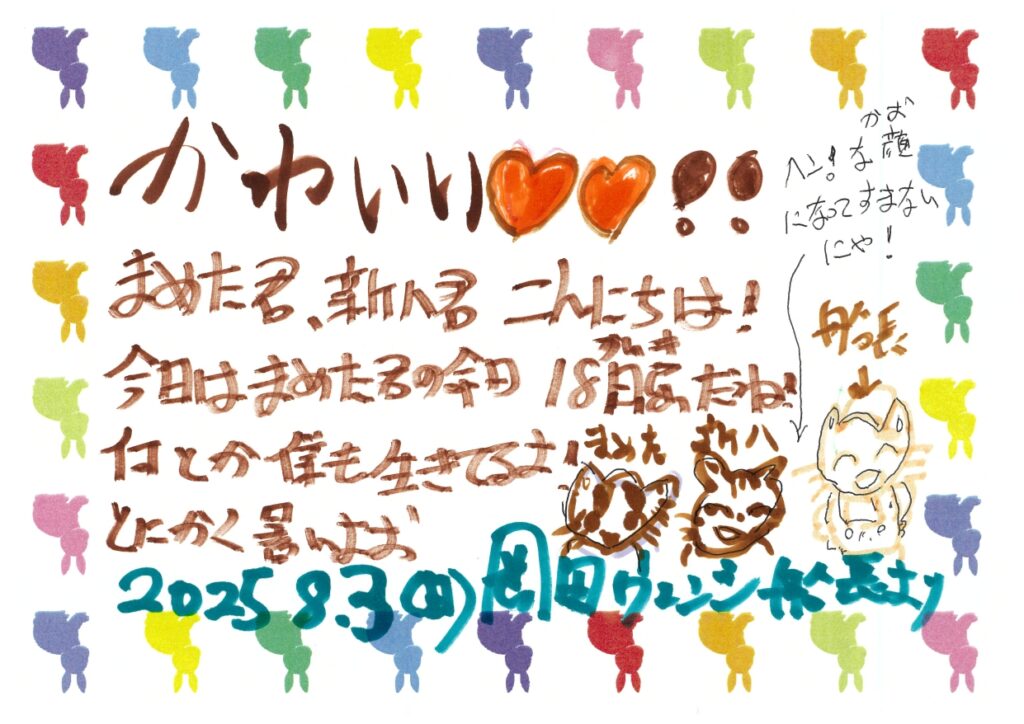 かわいい!!
まめた君、新八君 こんにちは!
今日はまめた君の命日 18回忌だね!
かいき
何とか僕も生きてるよ!
とにかく暑いよお
2025 8.3(日)岡田ヴェンジ船長より
かお
ヘン!な顔
になってすまない
にゃ!
船長
まめた
新八